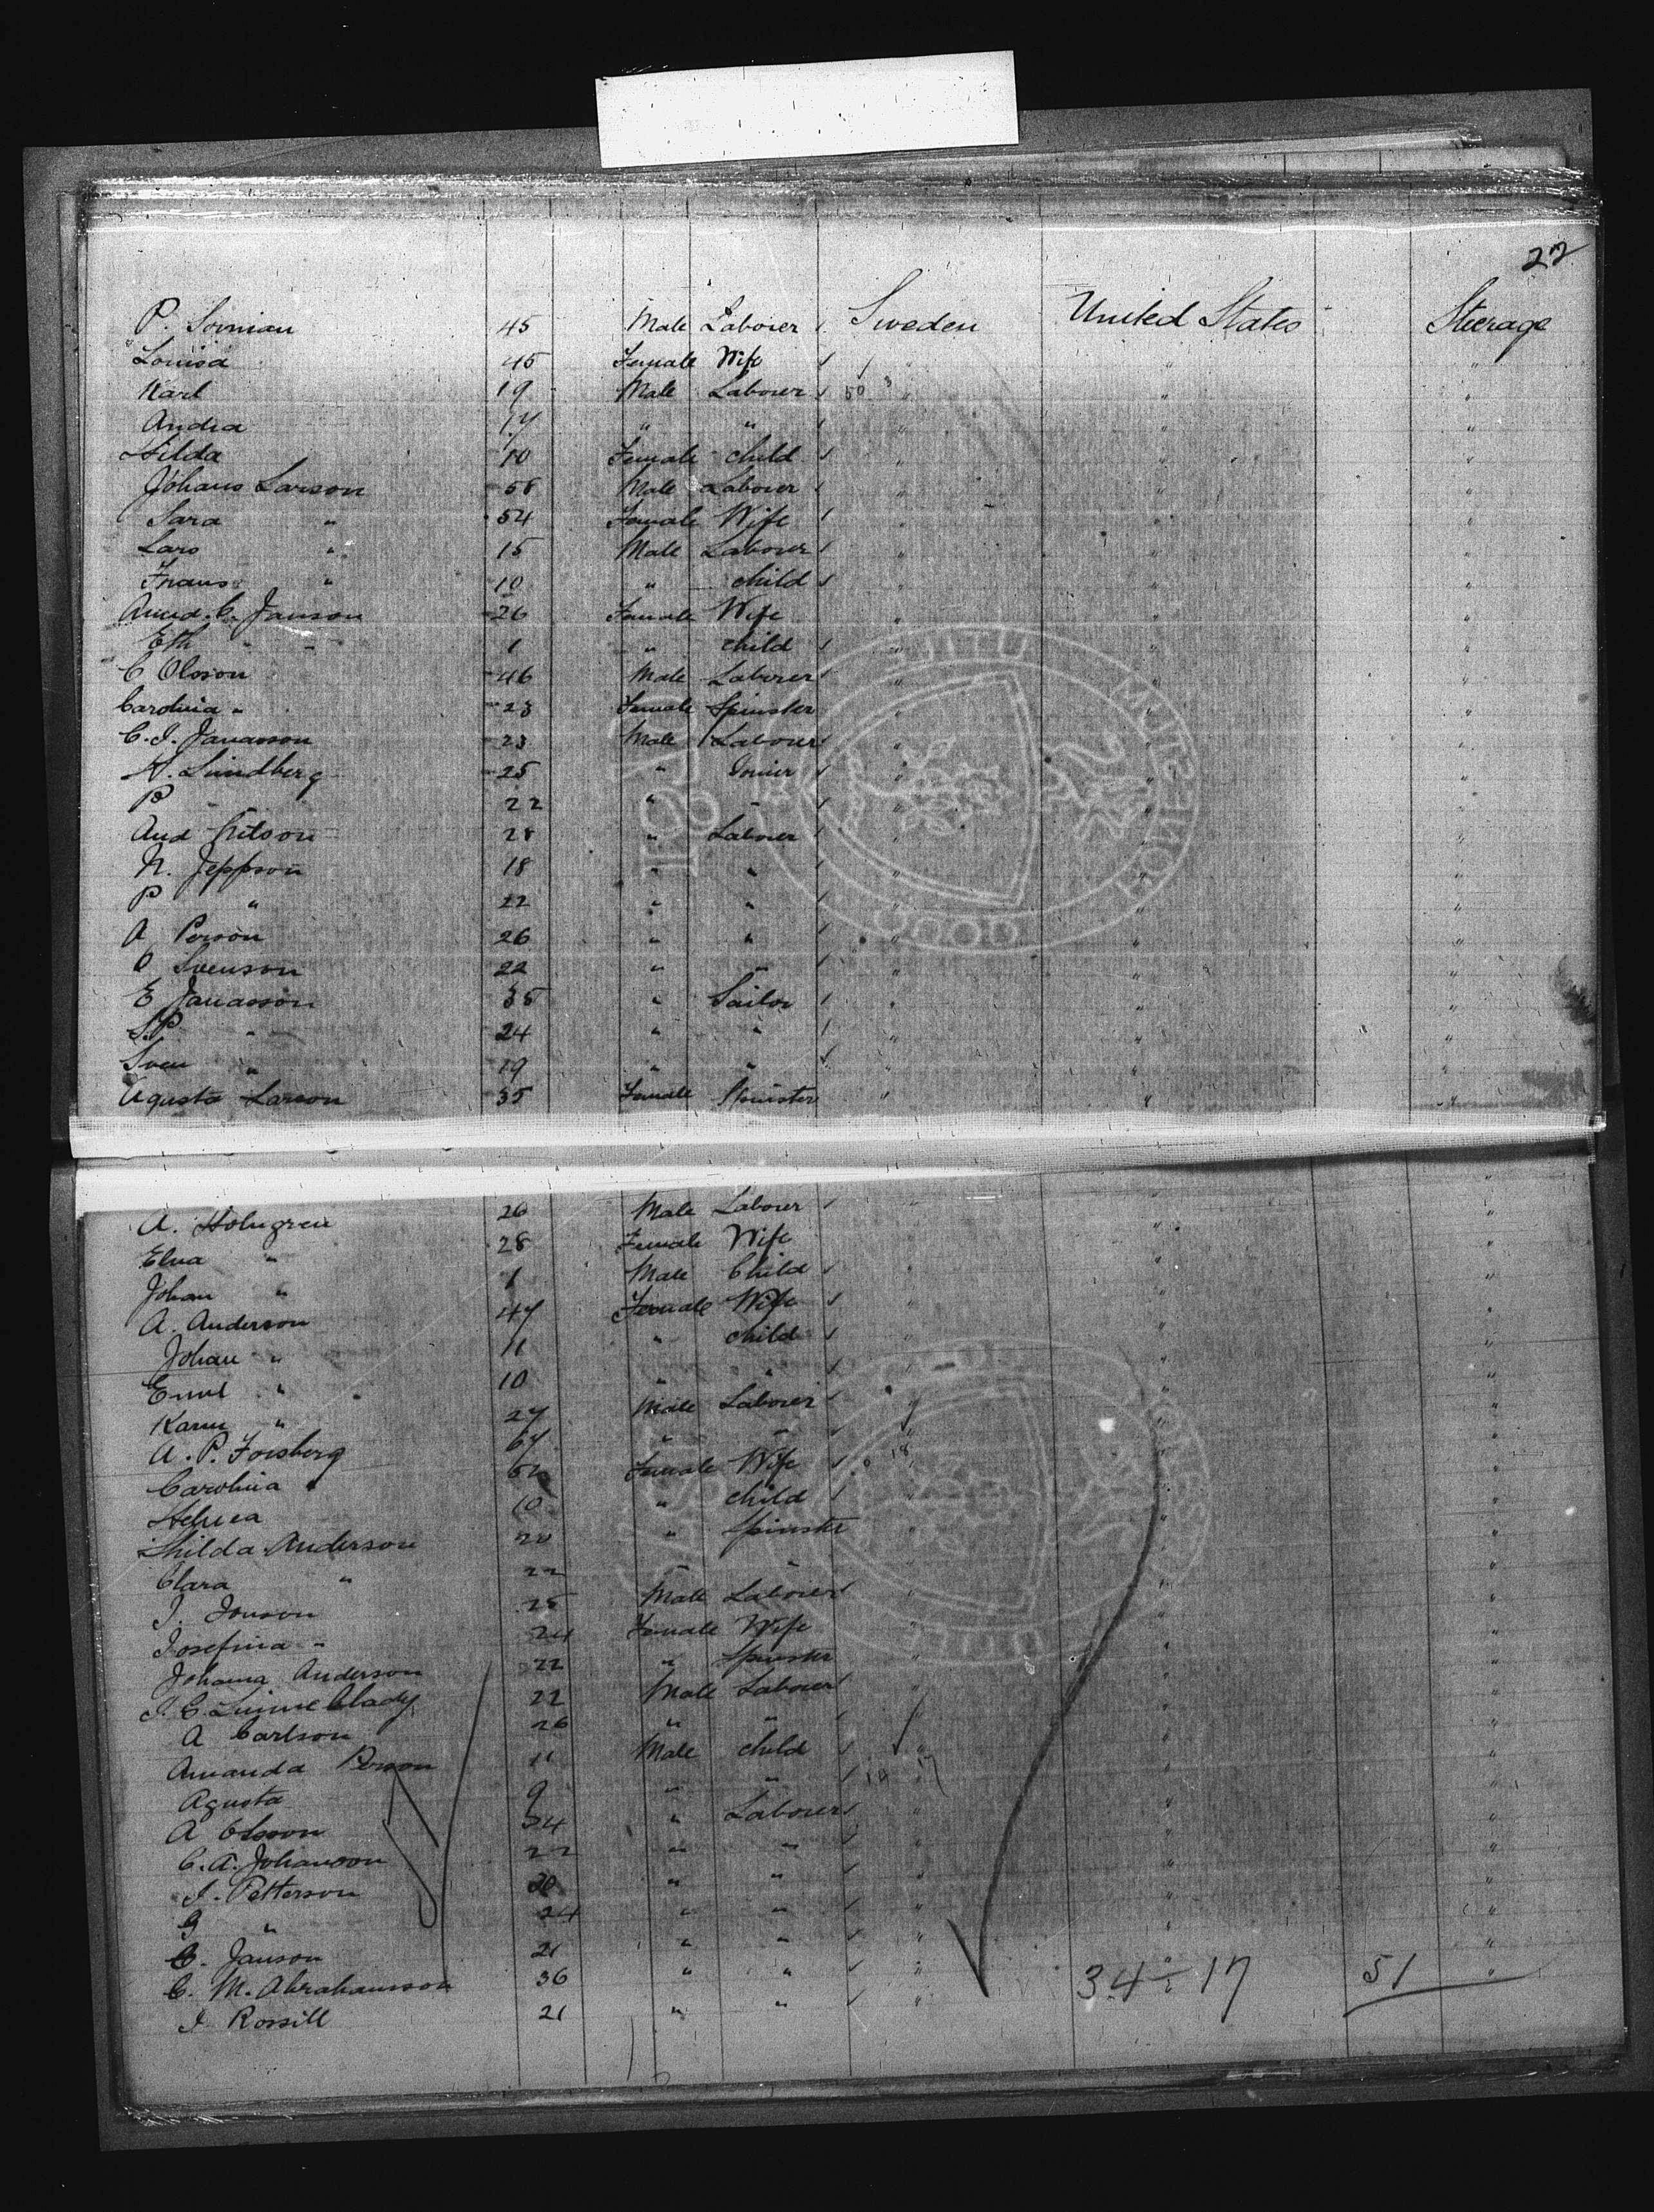 22
P. Sornian 45 Male Laborer Sweden United States Steerage
Louisa 45 Female Wife " " "
Karl 19 Male Laborer 50 " " "
Andra 17 " " " " "
Hilda 10 Female child " " "
Johans Larson 58 Male Laborer " " "
Sara " 54 Female Wife " " "
Lars " 15 Male Laborer " " "
Frans " 10 " child " " "
Janson 26 Female Wife " " "
Eth " 1 " child " " "
C Olsson 46 Male Laborer " " "
Carolina " 23 Female Spinster " " "
C. J. Janasson 23 Male Laborer " " "
A. Lundberg 25 " Joiner " " "
P " 22 " " " " "
And Nilson 28 " Laborer " " "
N. Jeppson 18 " " " " "
P " 22 " " " " "
A Person 26 " " " " "
O Svenson 22 " " " " "
E Janasson 35 " Sailor " " "
S.P " 24 " " " " "
Sven " 19 " " " " "
Agusta Larson 35 Female Spinster " " "
A. Holmgren 26 Male Laborer " " "
Elna " 28 Female Wife " " "
Johan " 1 Male Child " " "
A. Anderson 47 Female Wife " " "
Johan " 11 " child " " "
Emil " 10 " " " " "
Karin " 27 Male Laborer " " "
A. P. Forsberg 67 " " " " "
Carolina " 62 Female Wife " " "
10 " child " " "
Hilda Anderson 20 " Spinster " " "
Clara " 22 " " " " "
J. Jonson 25 Male Laborer " " "
Josefina " 24 Female Wife " " "
Johanna Anderson 22 " Spinster " " "
22 Male Laborer " " "
A Carlson 26 " " " " "
Amanda Person 11 Male child " " "
Agusta 9 " " " " "
A Olsson 24 " Laborer " " "
C. A. Johanson 22 " " " " "
J. Petterson 20 " " " " "
G " 24 " " " " "
C. Janson 21 " " " " "
C. M. Abrahamsson 36 " " " 34 17 51 "
J Rossill 21 " " "